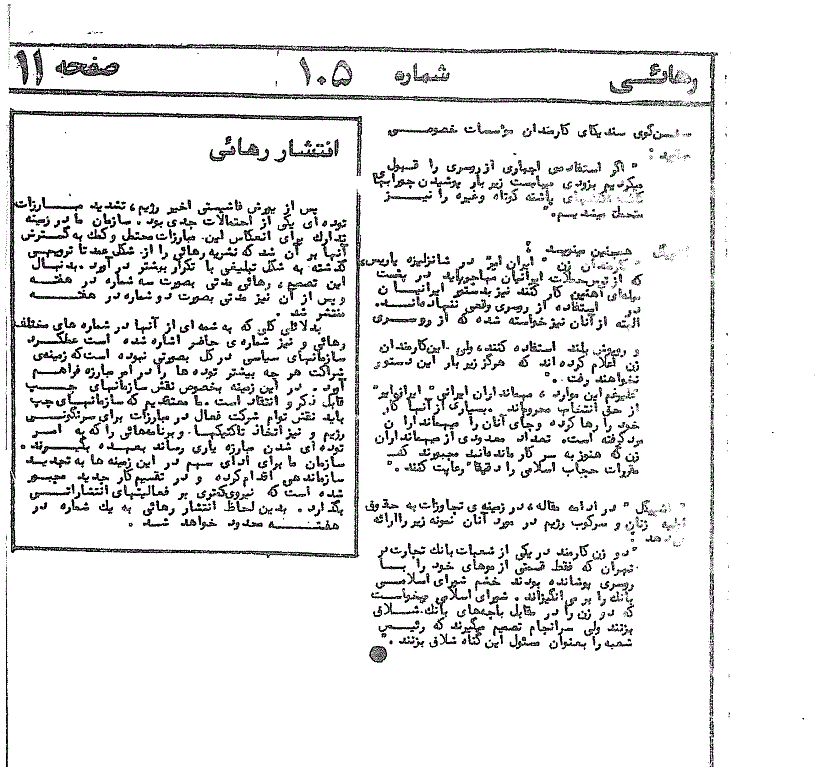 رهائی
شماره ۱۰۵
صفحه ۱۱
سخن‌گوی سندیکای کارمندان مؤسسات خصوصی
" اگر استفاده‌ی اجباری از روسری را قبول
میکردیم بزودی میبایست زیر بار پوشیدن جورابهای
پاشنه کوتاه وغیره را نیز
متحمل میشدیم."
همچنین مینویسد :
زن " ایران ایر" در شانزلیزه پاریس
که از ترس حملات ایرانیان مهاجر باید در پشت
میله‌ای آهنین کار کنند نیز بدستور ایرانیان
استفاده از روسری وقعی ننهاده‌اند.
البته از آنان نیز خواسته شده که از روسری
و روپوش بلند استفاده کنند، ولی این کارمندان
زن اعلام کرده اند که هرگز زیر بار این دستور
نخواهند رفت ."
علیرغم این موارد ، میهمانداران ایرانی "ایران‌ایر"
از حق انتخاب محرومند. بسیاری از آنها کار
خود را رها کرده وجای آنان را میهمانداران
مرد گرفته است. تعداد معدودی از میهمانداران
زن که هنوز به سر کار مانده‌اند مجبورند کلیه
مقررات حجاب اسلامی را دقیقا" رعایت کنند ."
" اشپیگل " در ادامه مقاله، در زمینه‌ی تجاوزات به حقوق
اولیه زنان و سرکوب رژیم در مورد آنان نمونه زیر را ارائه
می‌دهد :
"دو زن کارمند در یکی از شعبات بانک تجارت در
تهران که فقط قسمتی از موهای خود را با
روسری پوشانده بودند خشم شورای اسلامی
بانک را بر می‌انگیزاند . شورای اسلامی میخواست
که دو زن را در مقابل باجه‌های بانک شلاق
بزنند ولی سرانجام تصمیم میگیرند که رئیس
شعبه را بعنوان مسئول این گناه شلاق بزنند ."
انتشار رهائی
پس از یورش فاشیستی اخیر رژیم، تشدید مبارزات
توده‌ای یکی از احتمالات جدی بود. سازمان ما در زمینه
تدارک برای انعکاس این مبارزات محتمل و کمک به گسترش
آنها بر آن شد که نشریه رهائی را از شکل عمدتا ترویجی
گذشته به شکل تبلیغی با تکرار بیشتر در آورد. بدنبال
این تصمیم، رهائی مدتی بصورت سه شماره در هفته
و پس از آن نیز مدتی بصورت دو شماره در هفته
منتشر شد .
بدلائلی کلی که به شمه ای از آنها در شماره های مختلف
رهائی و نیز شماره‌ی حاضر اشاره شده است عملکرد
سازمانهای سیاسی در کل بصورتی نبوده است که زمینه‌ی
شراکت هر چه بیشتر توده ها را در امر مبارزه فراهم
آورد . در این زمینه بخصوص نقش سازمانهای چپ
قابل ذکر و انتقاد است .ما معتقدیم که سازمانهای چپ
باید نقش توام شرکت فعال در مبارزات برای سرنگونی
رژیم و نیز اتخاذ تاکتیکها و برنامه‌هائی را که به امر
توده ای شدن مبارزه یاری رساند بعهده بگیرند.
سازمان ما برای ادای سهم در این زمینه ها به تجدید
سازماندهی اقدام کرده و در تقسیم کار جدید مجبور
شده است که نیروی کمتری بر فعالیتهای انتشاراتی
بگذارد . بدین لحاظ انتشار رهائی به یک شماره در
هفته محدود خواهد شد .